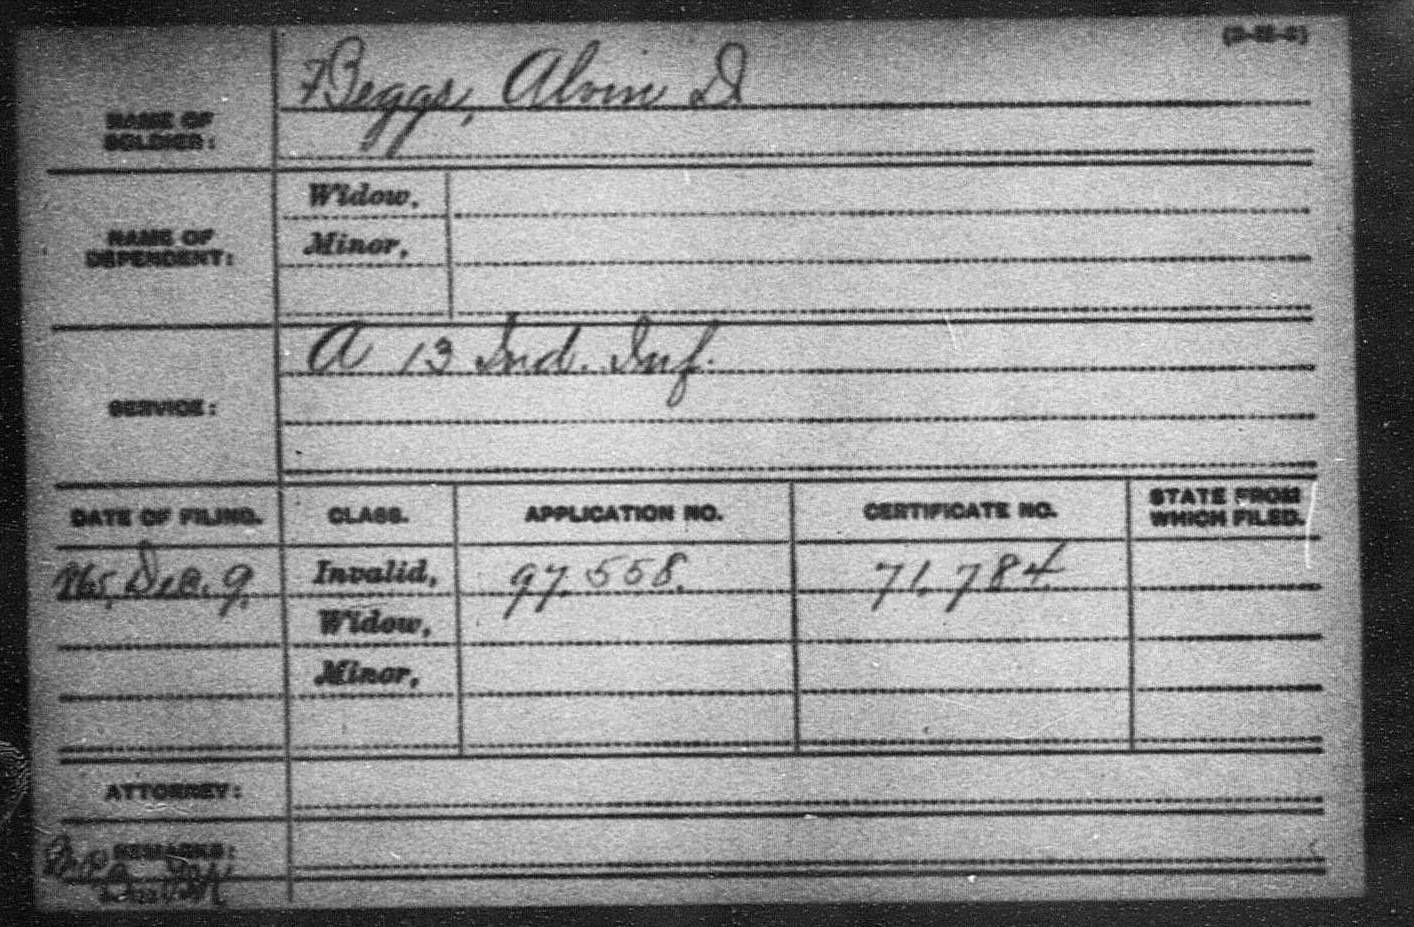 Beggs, Alvin D
NAME OF
SOLDIER:
Widow,
NAME OF
DEPENDENT:
Minor,
A 13 Ind. Inf.
SERVICE:
DATE OF FILING. CLASS. APPLICATION NO. CERTIFICATE NO. STATE FROM
WHICH FILED.
Dec. 9. Invalid, 97.558. 71.784
Widow,
Minor,
ATTORNEY:
REMARKS: